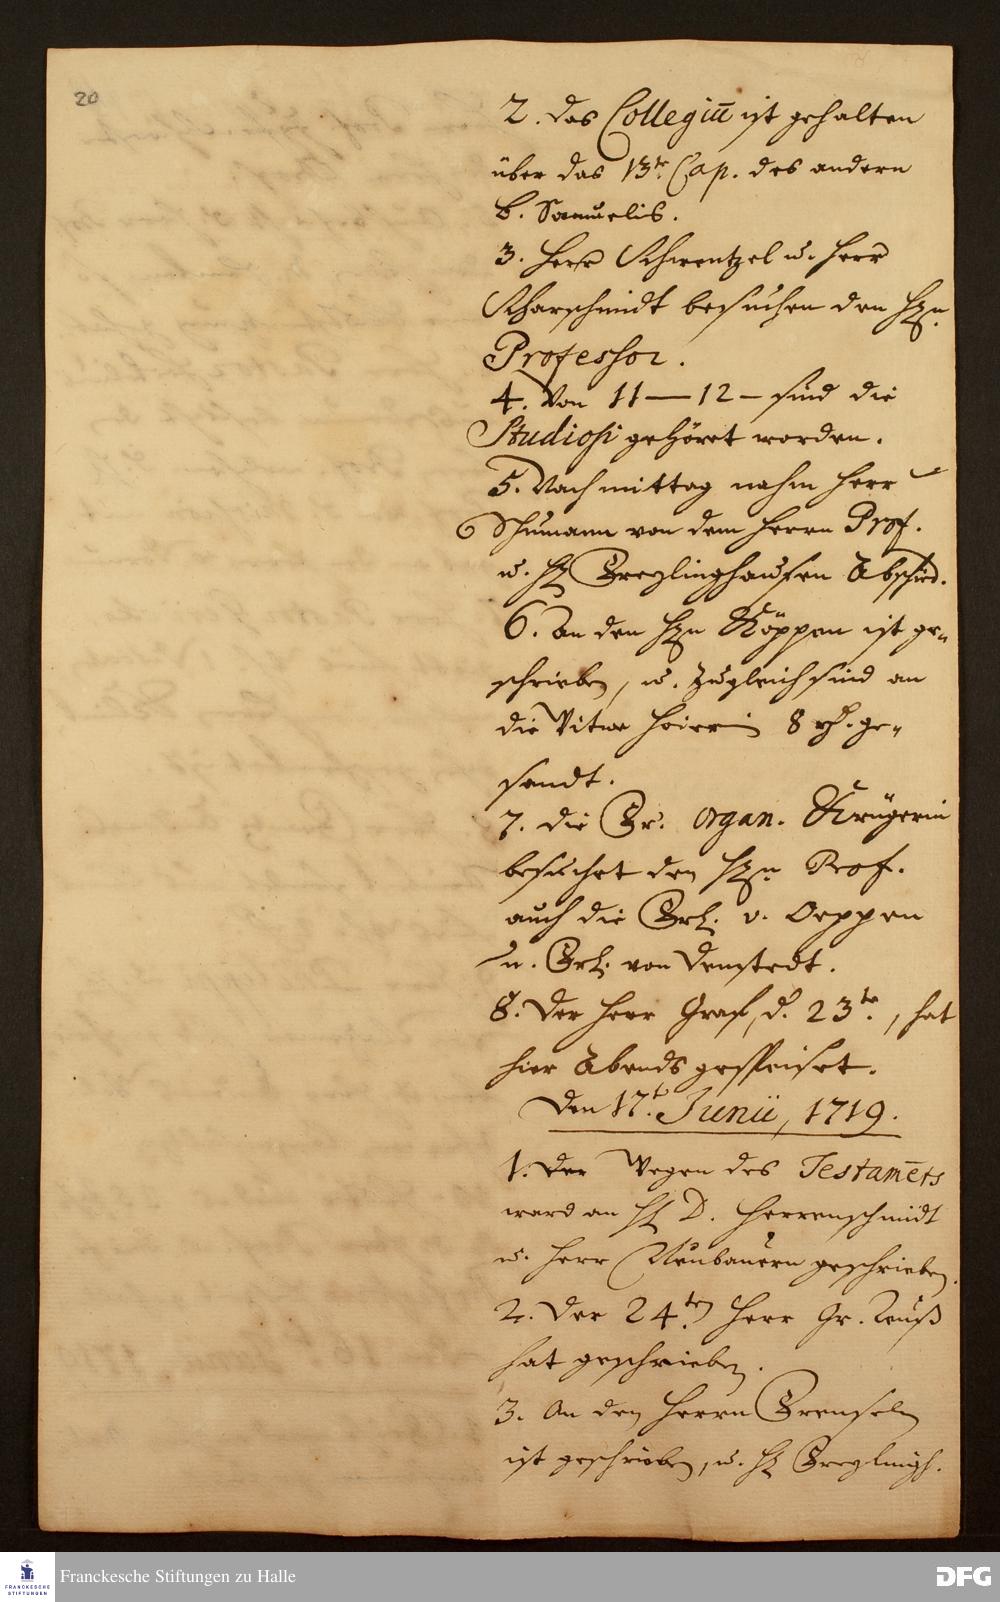 20
2. das Collegiū ist gehalten
über das 13te Cap. des andern
b. Samuelis.
3. Herr Schwentzel u. Herr
Scharschmidt besuchen den Hrn.
Professor.
4. Von 11 — 12 – sind die
Studiosi gehöret worden.
5. Nachmittag nahm Herr
Schumann von dem Herrn Prof.
u. H. Freylinghausen Abschied.
6. An den Hrn Köppen ist ge„
schrieben, u. zugleich sind an
die Vitwe 8 rh. ge„
sandt.
7. die Fr. Organ. Krügerin
besuchet den Hrn Prof.
auch die Frl. v. Oeppen
u. Frl. von Denstedt.
8. Der Herr Graf, d. 23te., hat
hier Abends gespeiset.
Den 17t. Junii, 1719.
1. Der Wegen des Testamēts
ward an H. D. Herrenschmidt
u. Herr Neubauern geschrieben.
2. Der 24ten Herr Gr. Reuß
hat geschrieben.
3. An den Herrn
ist geschrieben, u. H. Freylingh.
Franckesche Stiftungen zu Halle
FRANCKESCHE
STIFTUNGEN
DFG